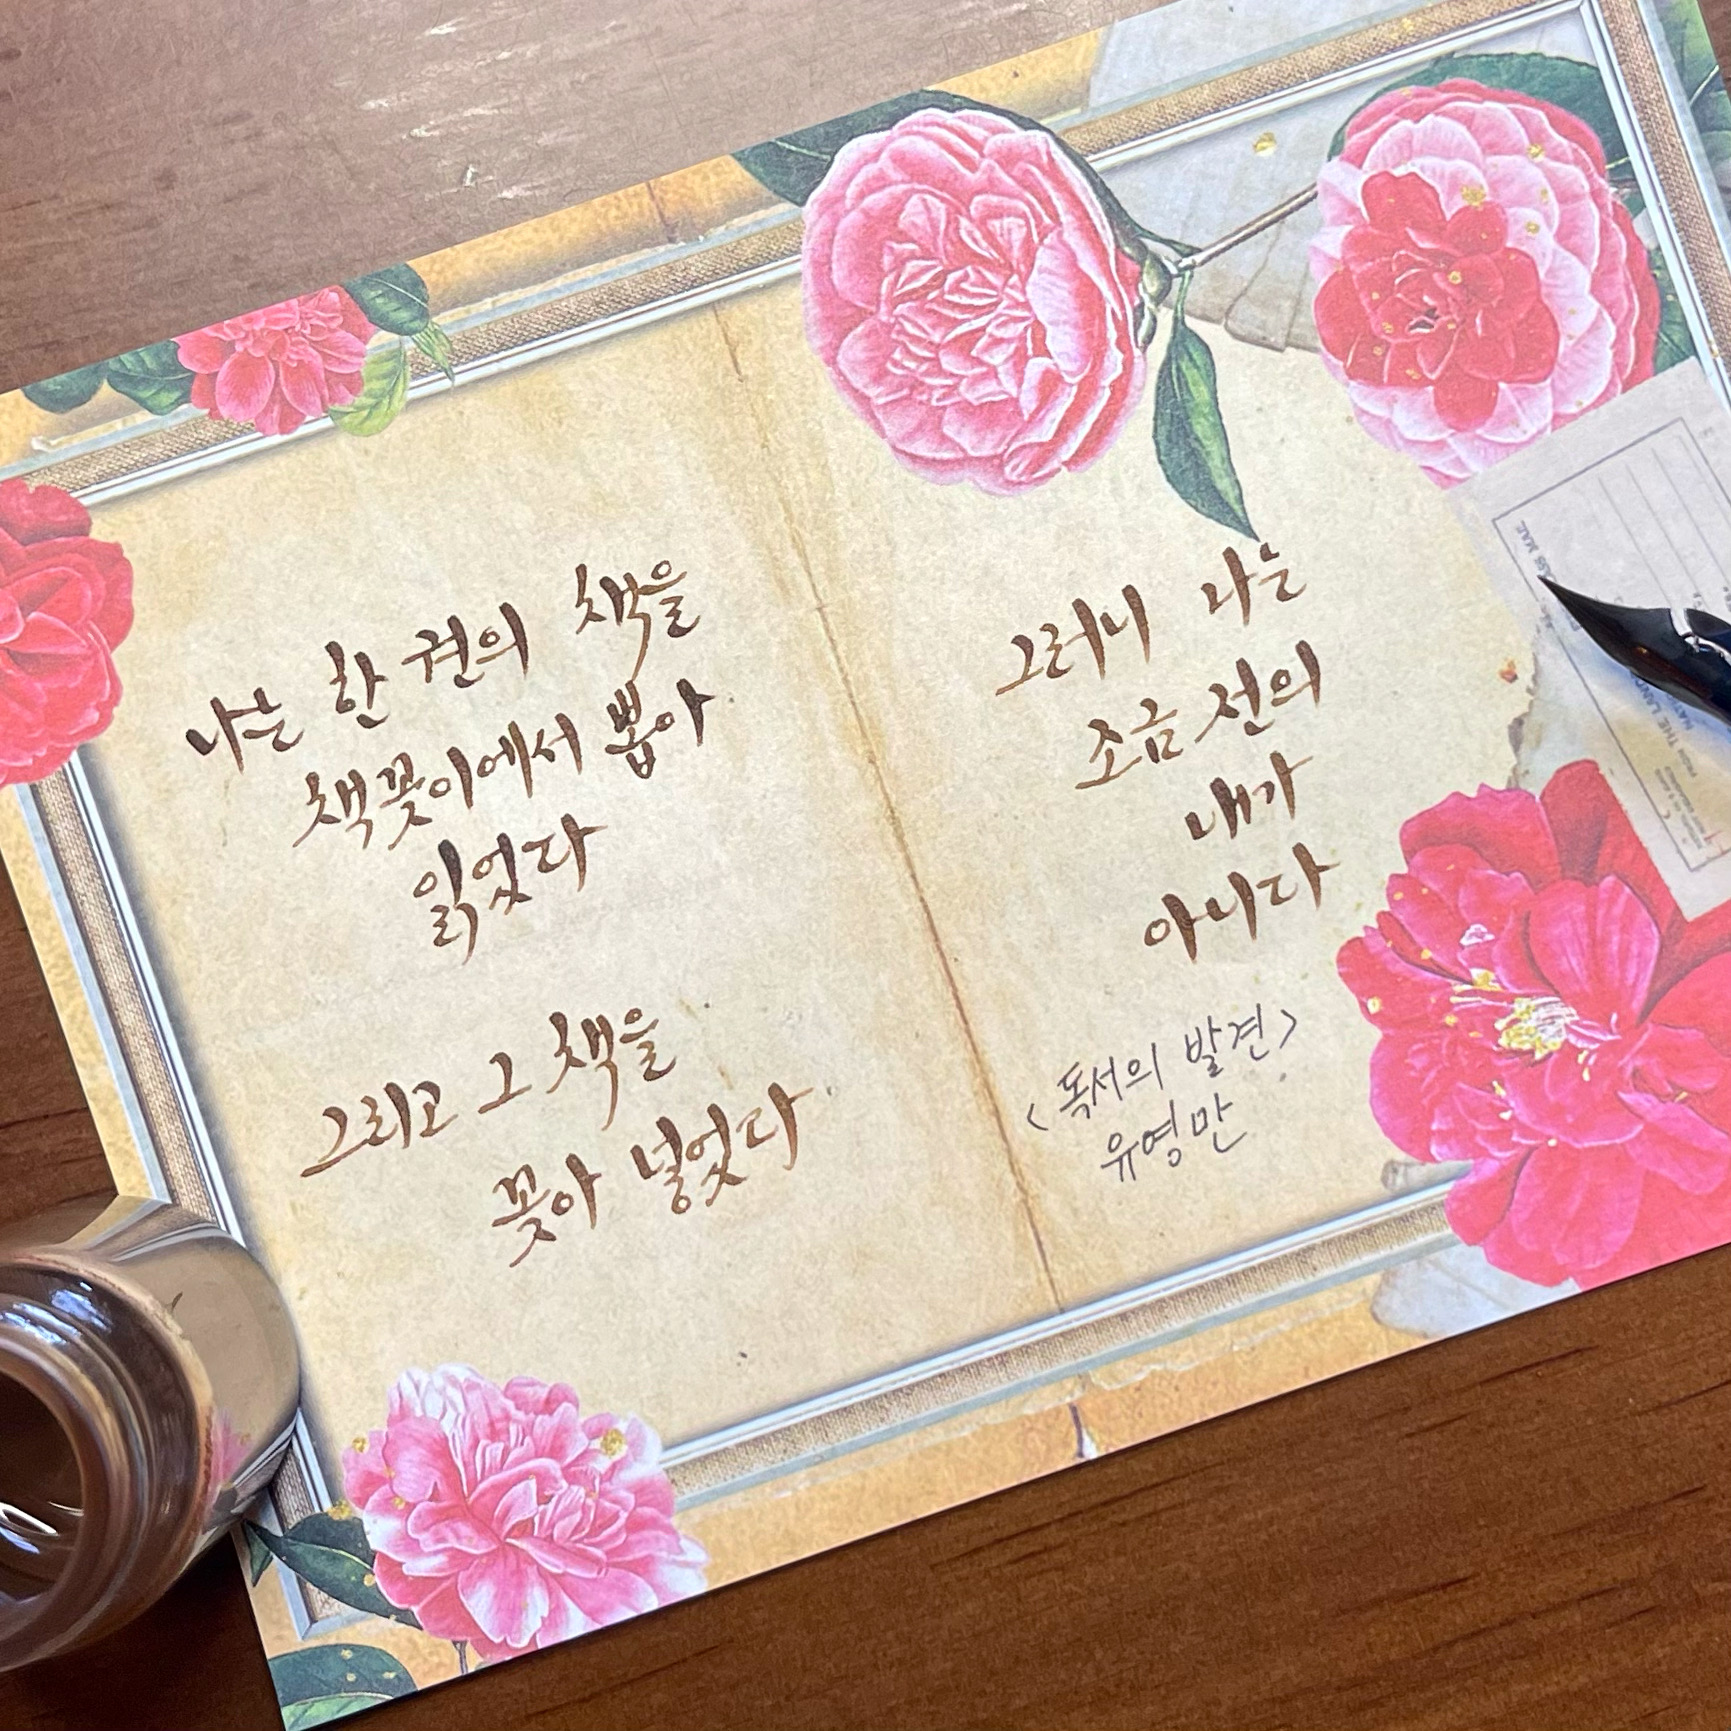 나는 한 권의 책을
책꽂이에서 뽑아
읽었다
그리고 그 책을
꽂아 넣었다
그러니 나는
조금 전의
내가
아니다
<독서의 발견>
유영만